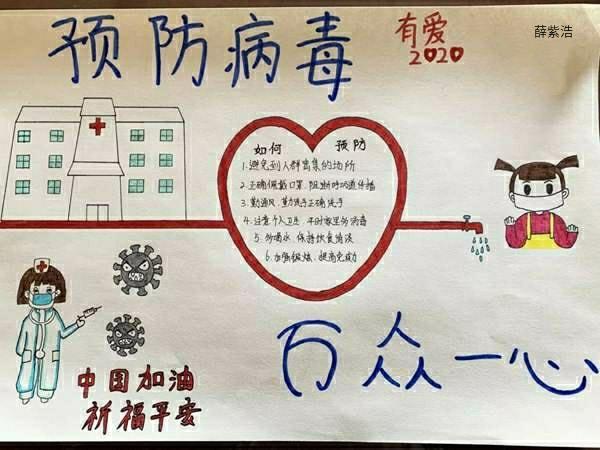 预防病毒
有爱
2020
薛紫浩
如何 预防
1.避免到人群密集的场所
2.正确佩戴口罩、阻断呼吸道传播
3.勤通风、勤洗手正确洗手
4.注意个人卫生、平时家里多消毒
5.多喝水 保持饮食清淡
6.加强锻炼、提高免疫力
中国加油
祈福平安
万众一心